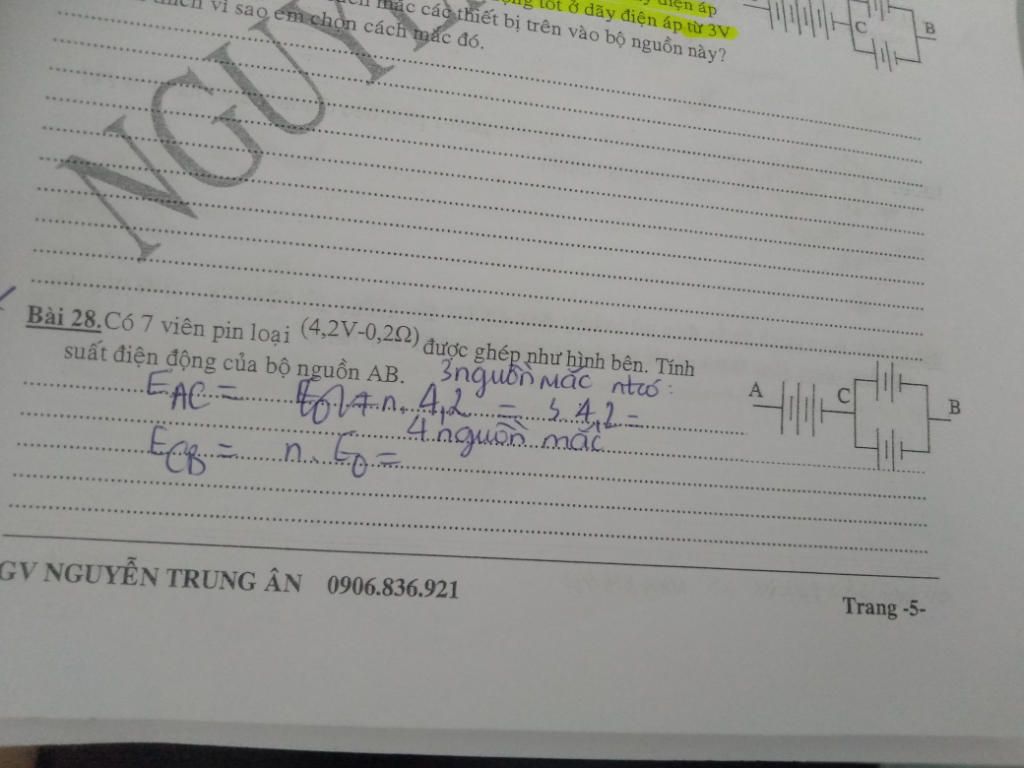 điện áp
tốt ở dãy điện áp từ 3V
mắc các thiết bị trên vào bộ nguồn này?
vì sao em chọn cách mắc đó.
C
B
NGUY
Bài 28. Có 7 viên pin loại (4,2V-0,2Ω) được ghép như hình bên. Tính
suất điện động của bộ nguồn AB.
3 nguồn mắc nt có:
E AC = n. 4,2 = 3. 4,2 =
4 nguồn mắc
E CB = n. E0 =
A
C
B
GV NGUYỄN TRUNG ÂN 0906.836.921
Trang -5-